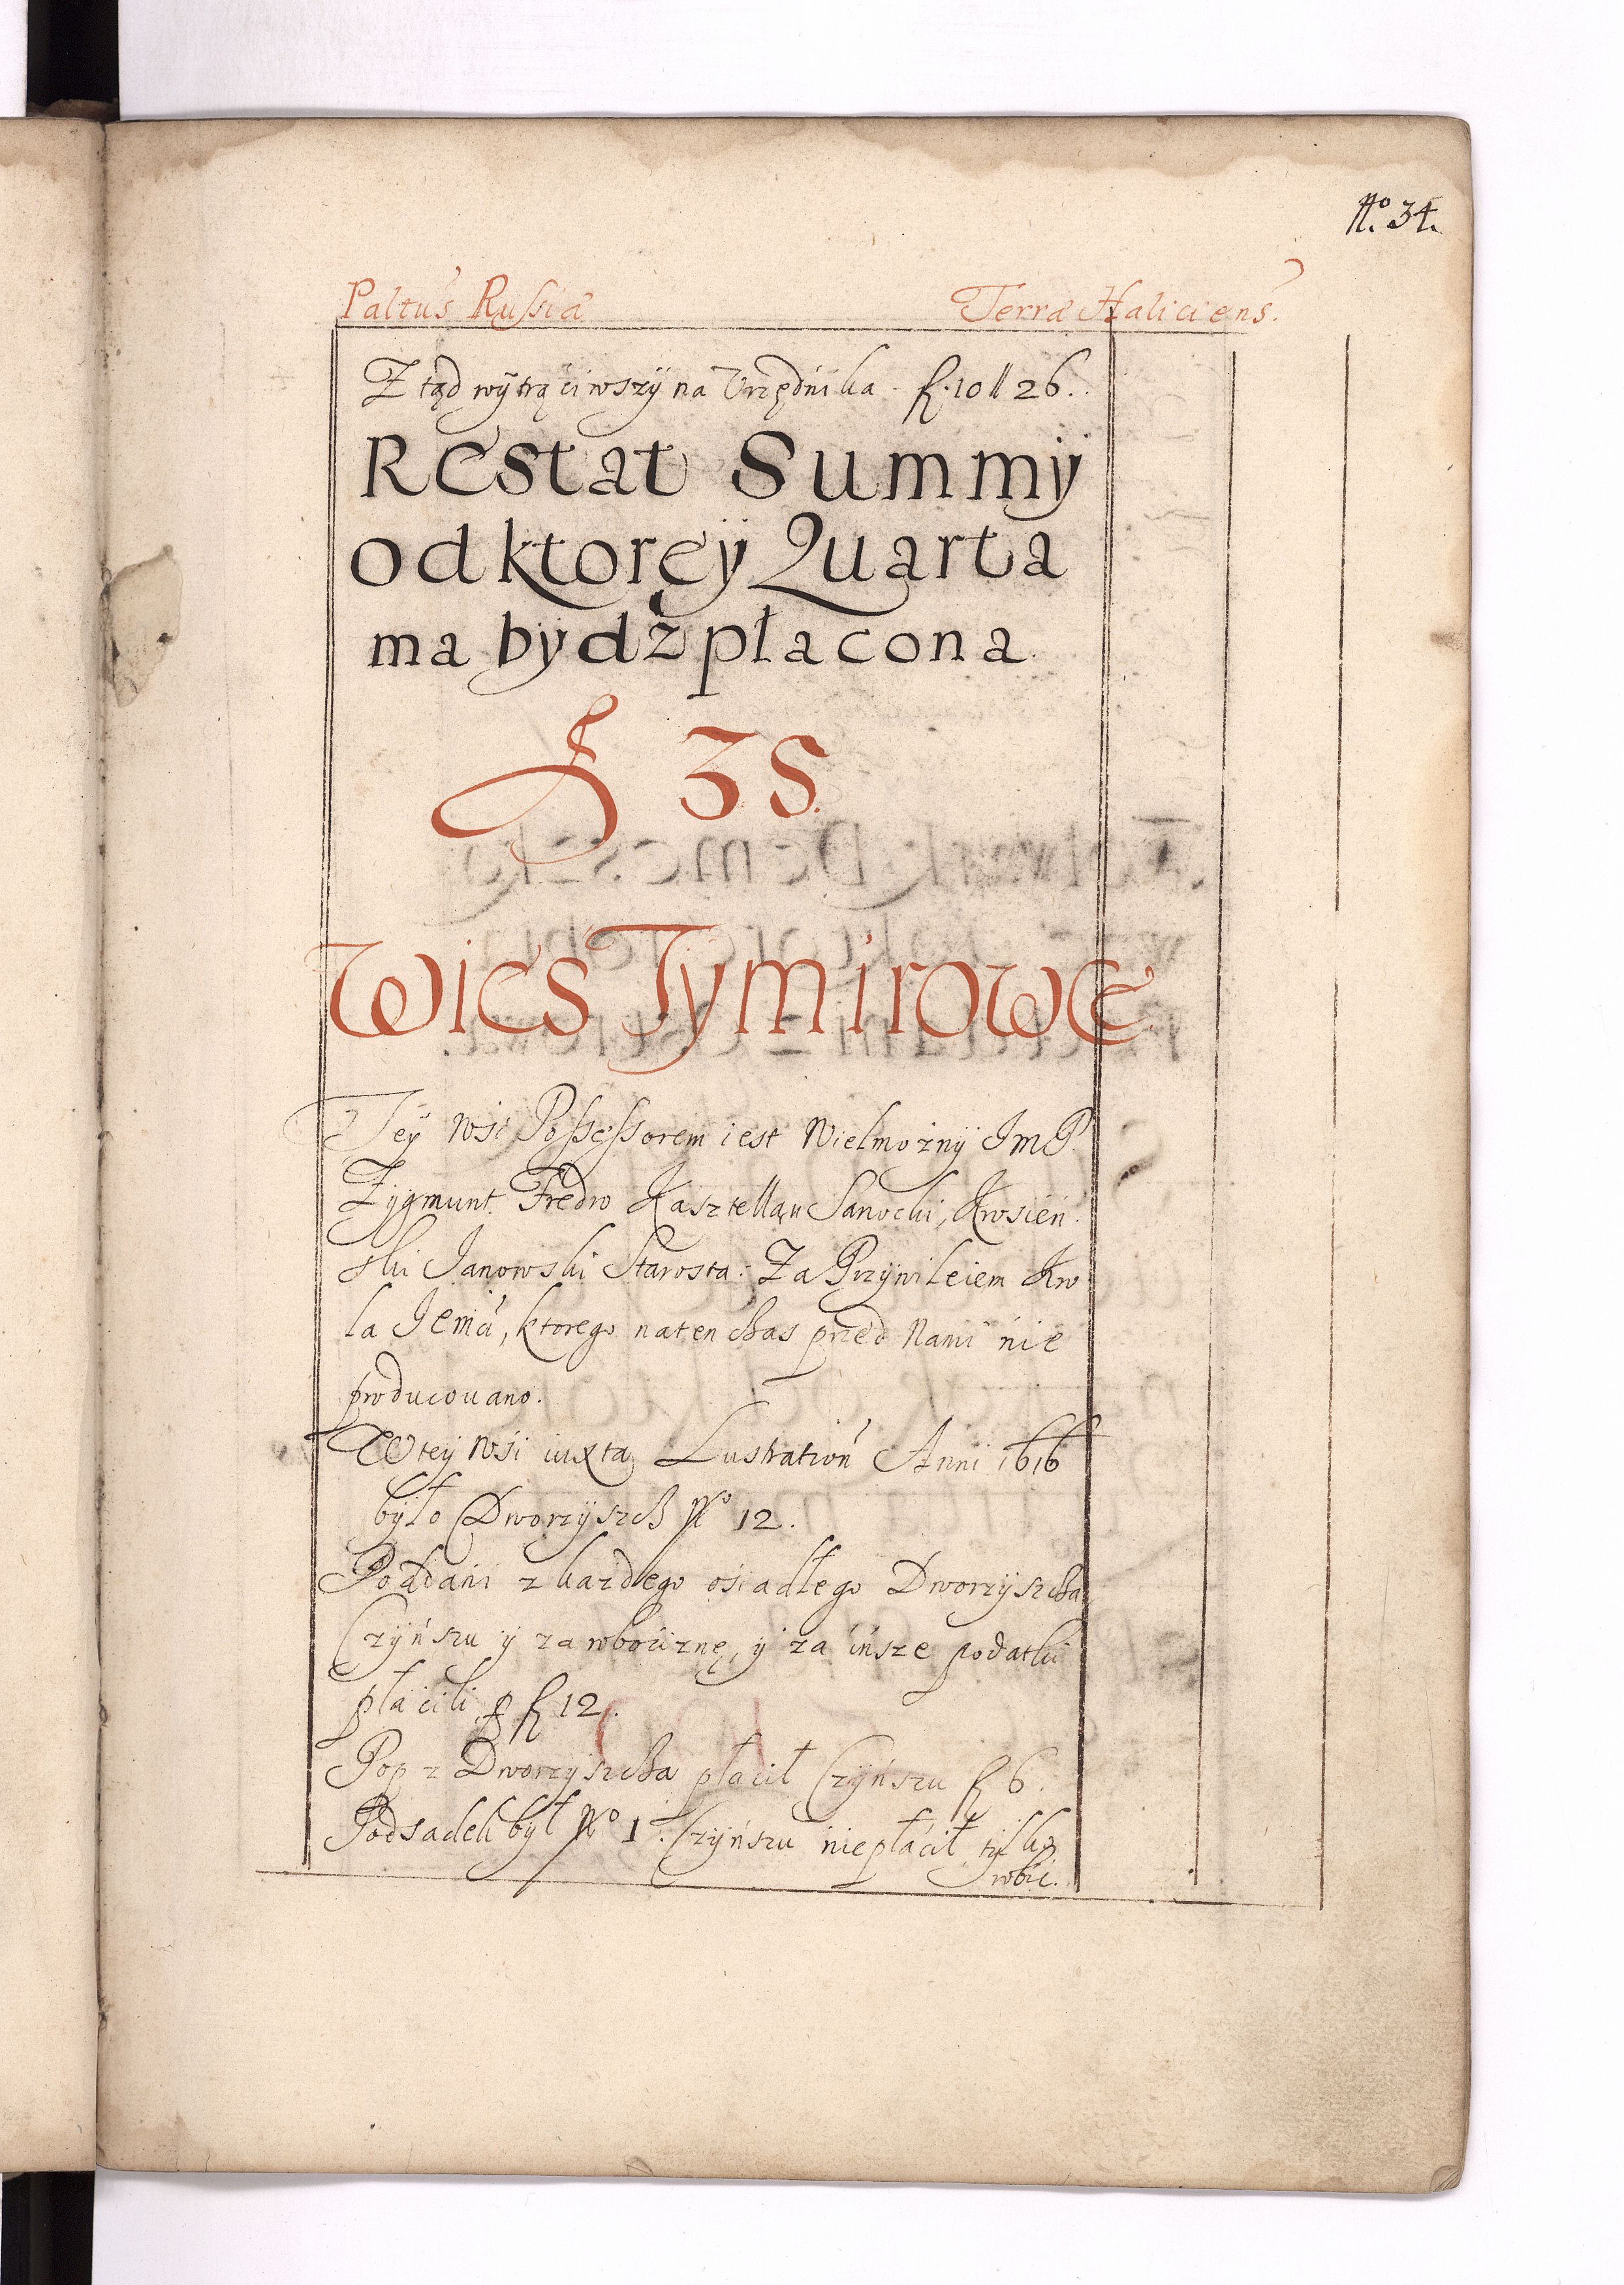 No. 34.
Paltus Russiæ Terræ Haliciens.
Ztąd wytrąciwszÿ na Urzędnika f. 10 ll 26.
Restat Summÿ
od ktoreÿ Quarta
ma bydź płacona
f 35.
Wies Tymirowce
Teÿ Wsi Possessorem iest Wielmożnÿ ImP.
Zygmunt Fredro Kasztellan Sanocki, Krosien
ski Janowski Starosta: Za Przÿwileiem Kro
la Jemci, ktorego naten czas przed Nami nie
producowano.
W teÿ Wsi iuxta Lustration Anni 1616
bÿło Dworzÿszcz No 12.
Poddani z każdego osiadłego Dworzÿszcza
Czÿńszu ÿ za robociznę, ÿ za insze podatki
płacili p f 12.
Pop z Dworzyszcza płacił Czÿńszu f 6.
Podsadek był No 1. Czÿńszu niepłacił tÿlko
robił.